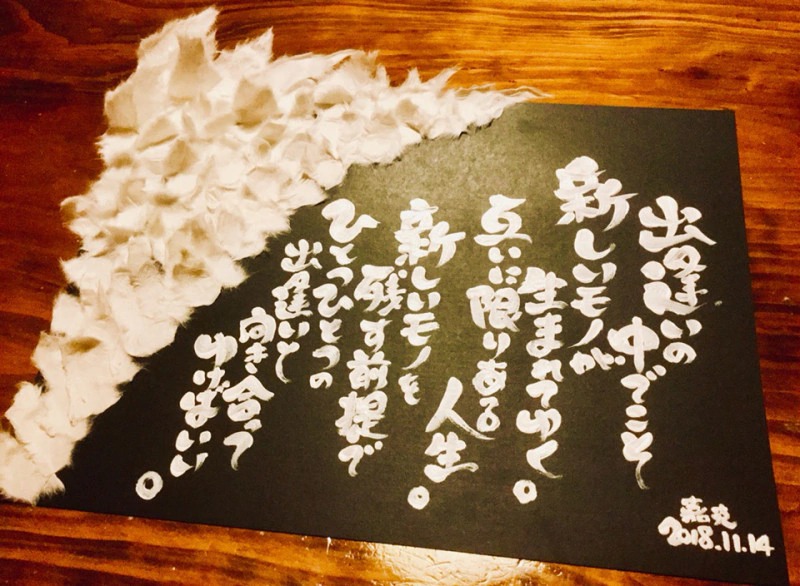 出逢いの
中でこそ
新しいモノが
生まれてゆく。
互いに限りある
人生。
新しいモノを
残す前提で
ひとつひとつの
出逢いと
向き合って
ゆけばいい。
2018.11.14